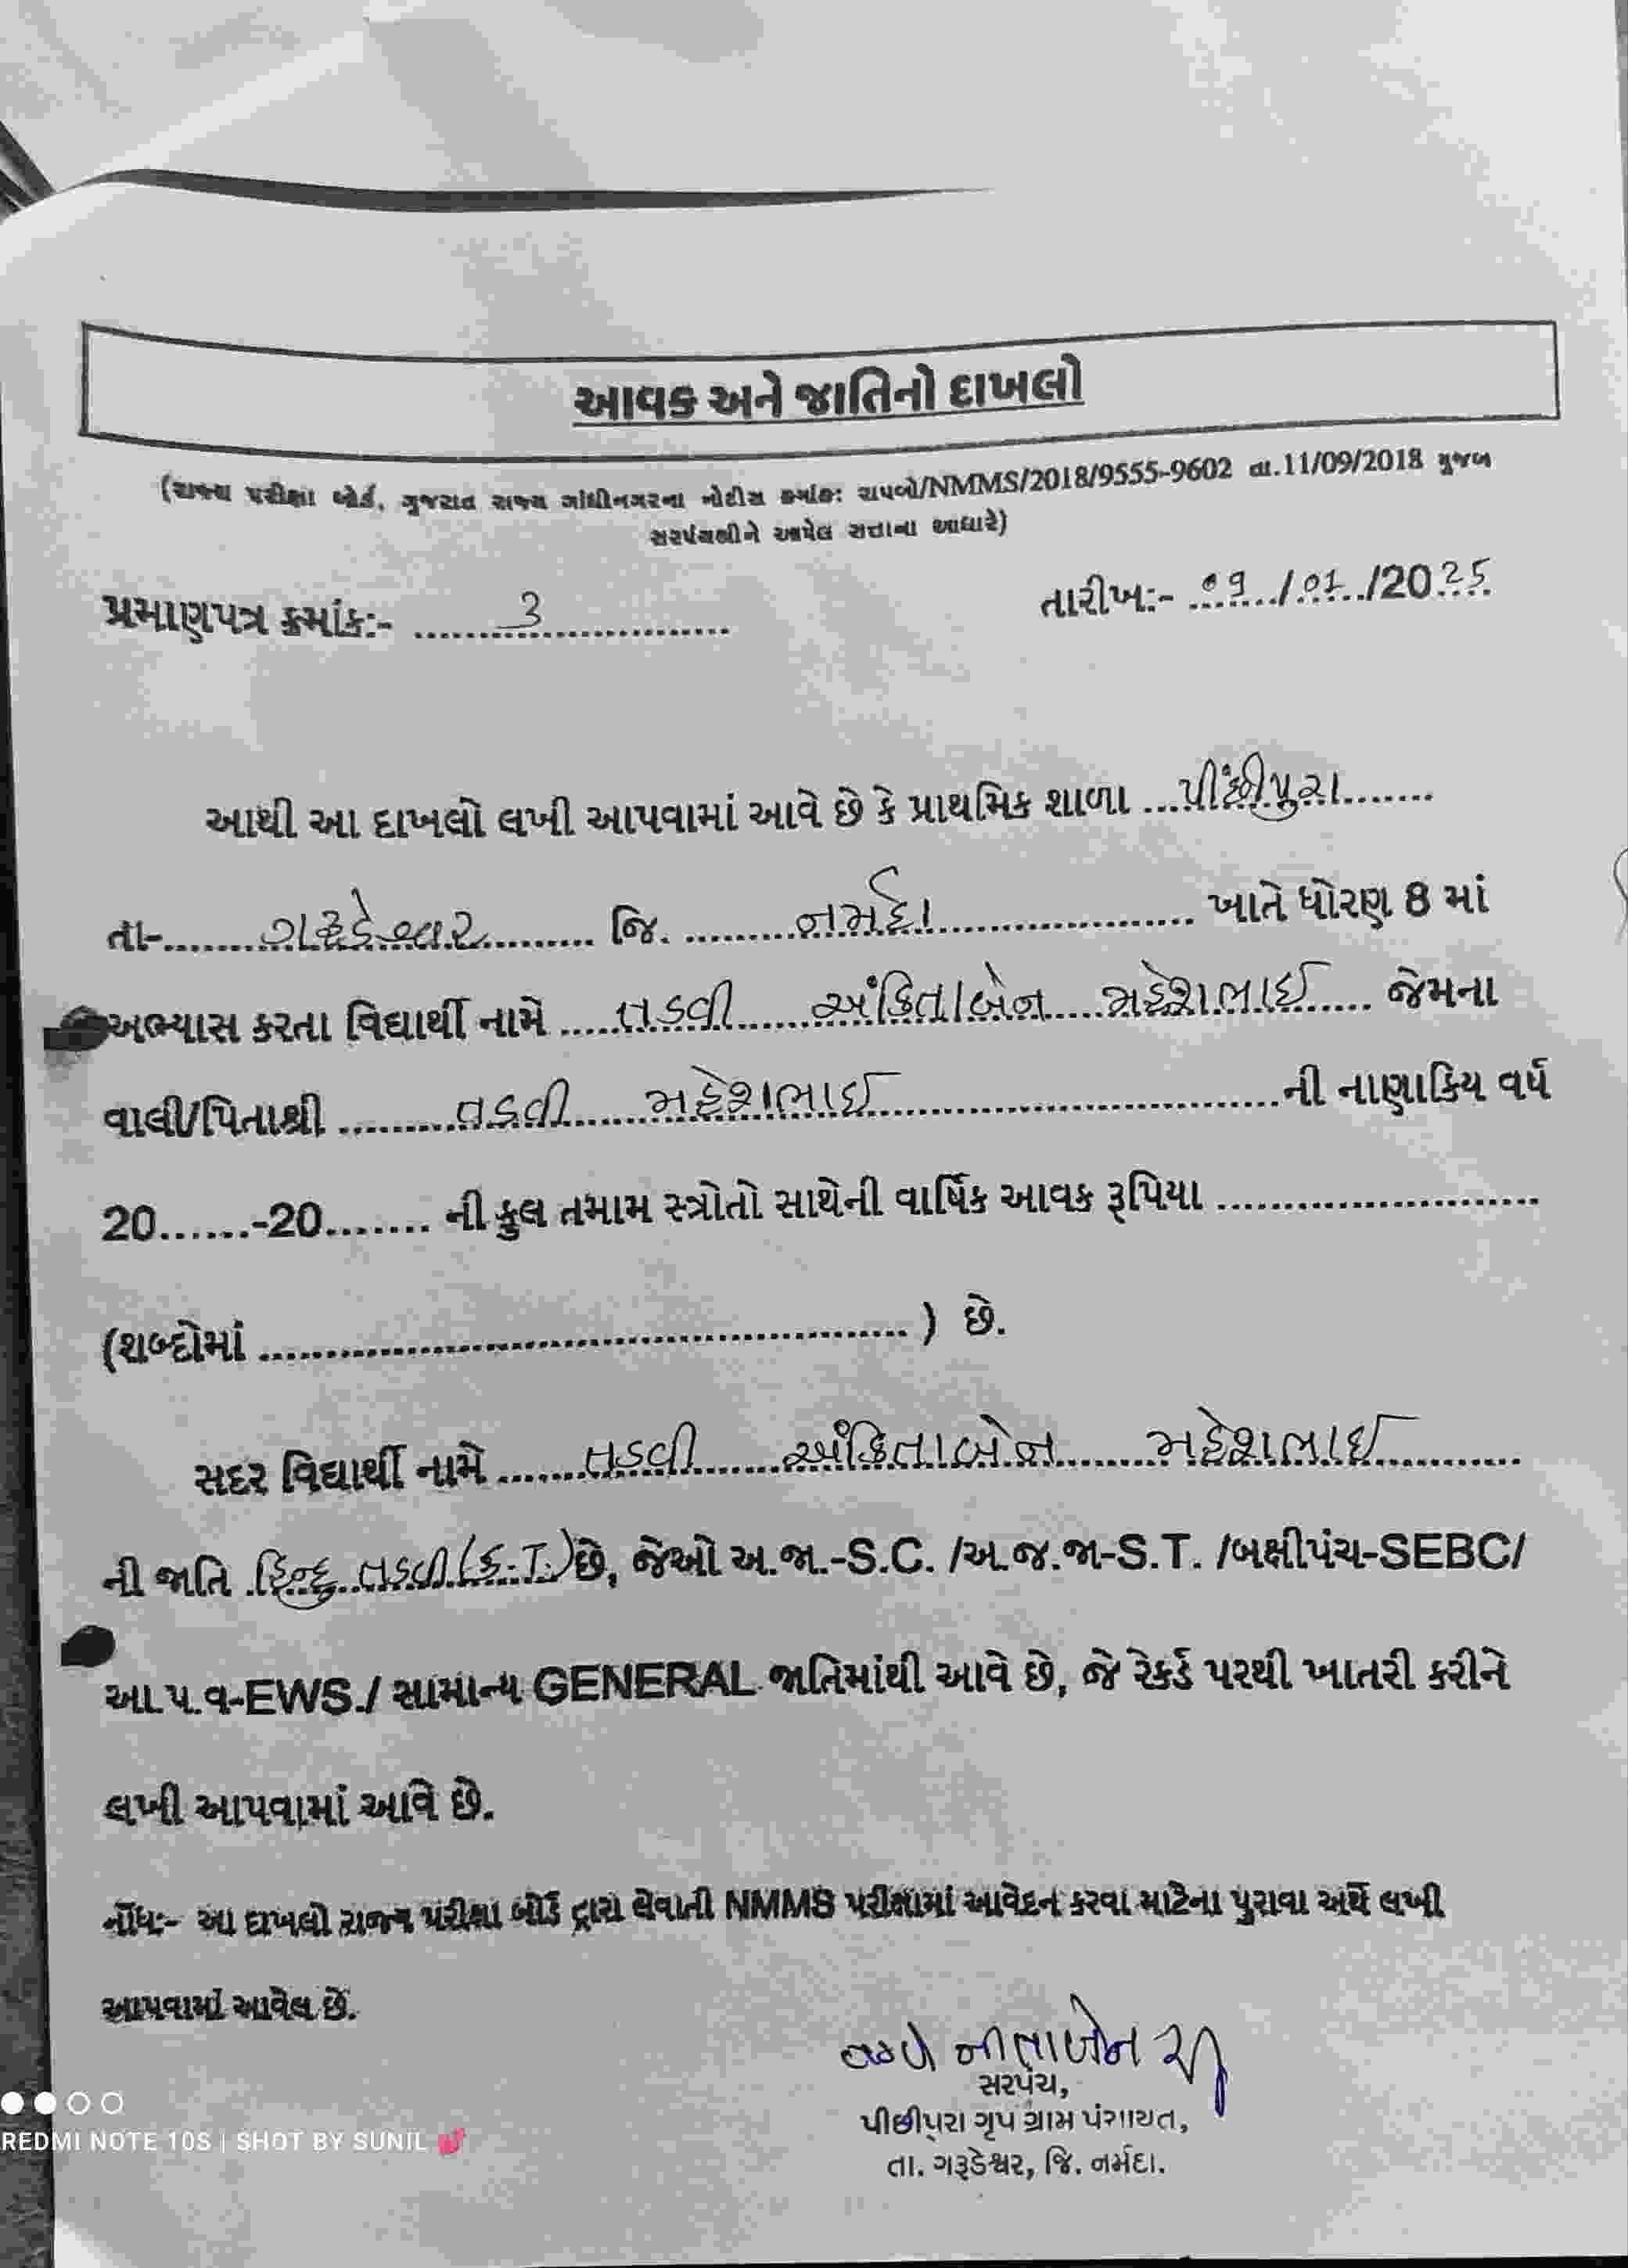 આવક અને જાતિનો દાખલો
(રાજ્ય પરીક્ષા બોર્ડ, ગુજરાત રાજ્ય ગાંધીનગરના નોટીસ ક્રમાંક: રાપબો/NMMS/2018/9555-9602 તા.11/09/2018 મુજબ
સરપંચશ્રીને આપેલ સત્તાના આધારે)
પ્રમાણપત્ર ક્રમાંક:- ......3...... તારીખ:- ૦9/01/2025
આથી આ દાખલો લખી આપવામાં આવે છે કે પ્રાથમિક શાળા ...પીંછીપુરા.......
તા-.......ગરૂડેશ્વર......... જિ. .........નર્મદા................... ખાતે ધોરણ 8 માં
અભ્યાસ કરતા વિદ્યાર્થી નામે .....તડવી......અંકિતાબેન....મહેશભાઈ...... જેમના
વાલી/પિતાશ્રી .........તડવી.....મહેશભાઈ..............................ની નાણાકિય વર્ષ
20......-20....... ની કુલ તમામ સ્ત્રોતો સાથેની વાર્ષિક આવક રૂપિયા ........................
(શબ્દોમાં ................................................) છે.
સદર વિદ્યાર્થી નામે ......તડવી......અંકિતાબેન........મહેશભાઈ..........
ની જાતિ .હિન્દુ..તડવી.છે, જેઓ અ.જા.-S.C. /અ.જ.જા-S.T. /બક્ષીપંચ-SEBC/
આ.પ.વ-EWS./ સામાન્ય GENERAL જાતિમાંથી આવે છે, જે રેકર્ડ પરથી ખાતરી કરીને
લખી આપવામાં આવે છે.
નોંધ:- આ દાખલો રાજ્ય પરીક્ષા બોર્ડ દ્વારા લેવાતી NMMS પરીક્ષામાં આવેદન કરવા માટેના પુરાવા અર્થે લખી
આપવામાં આવેલ છે.
નીતાબેન
સરપંચ,
પીછીપુરા ગૃપ ગ્રામ પંચાયત,
તા. ગરૂડેશ્વર, જિ. નર્મદા.
REDMI NOTE 10S | SHOT BY SUNIL 💕